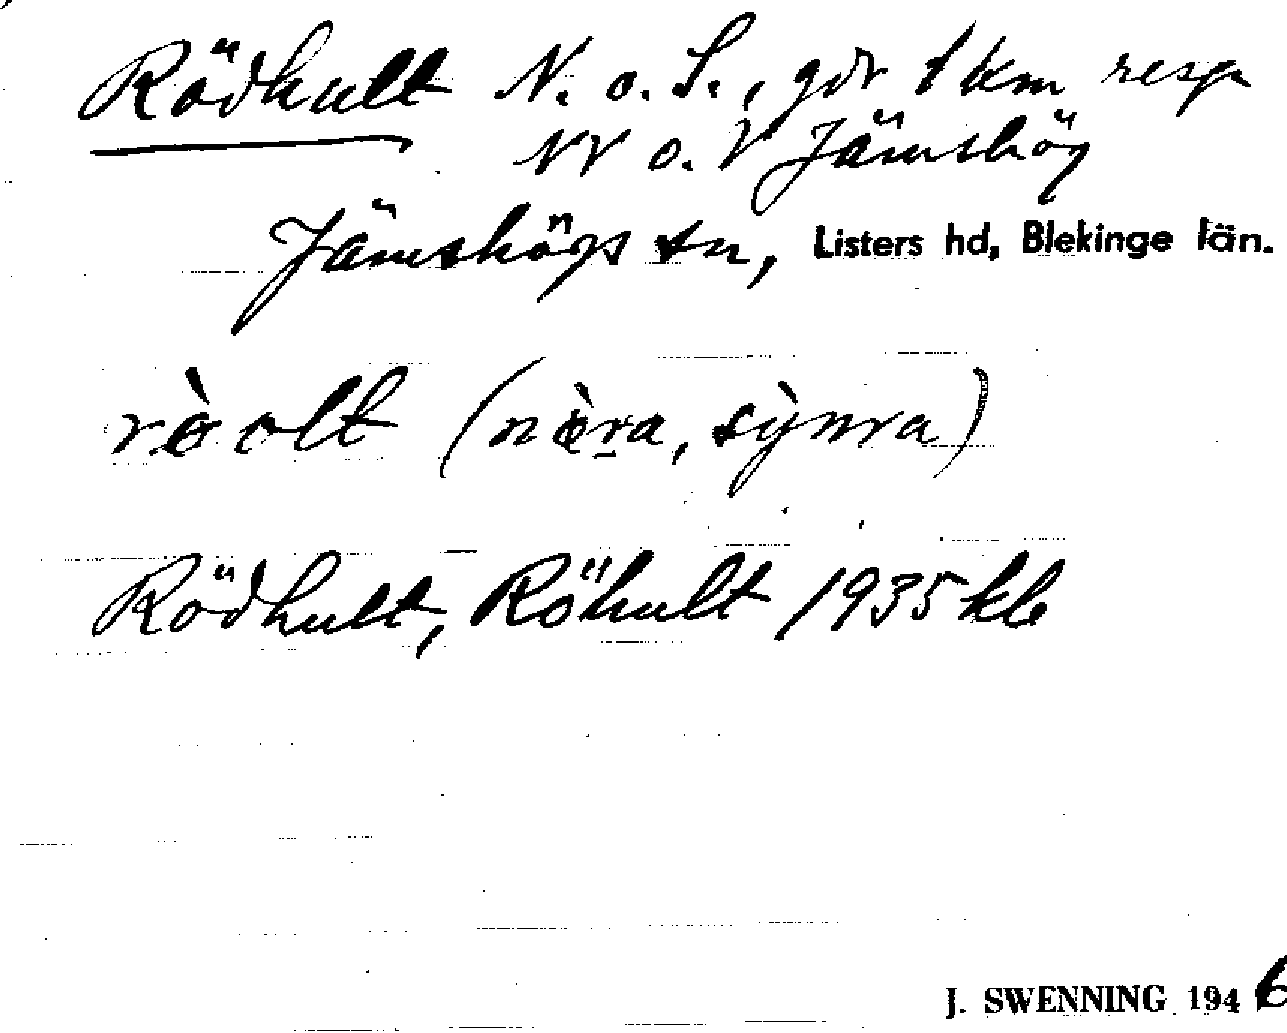 Rödhult N. o. S., gdr 1 km resp
NV o. V Jämshög
Jämshögs sn, Listers hd, Blekinge län.
rè olt (nèra, sỳnra)
Rödhult, Röhult 1935 kb
J. SWENNING 1946